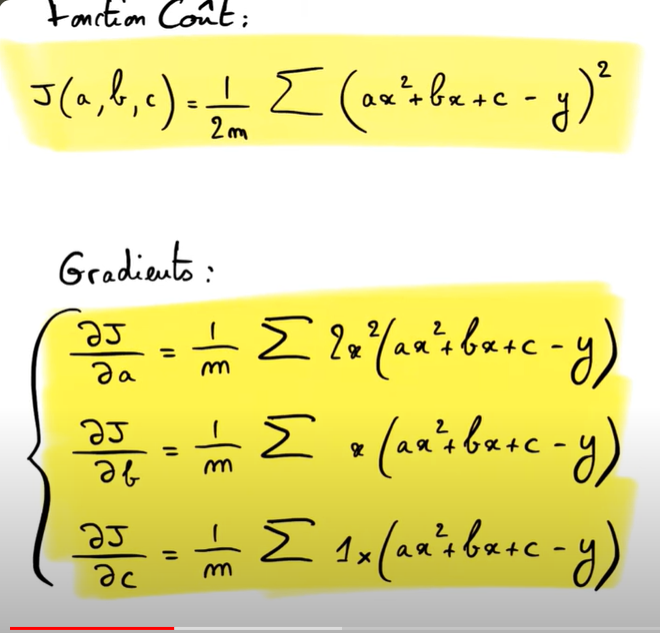 Fonction Coût :
J(a,b,c) = 1/2m Σ (ax²+bx+c - y)²
Gradients :
∂J/∂a = 1/m Σ 2x²(ax²+bx+c - y)
∂J/∂b = 1/m Σ x(ax²+bx+c - y)
∂J/∂c = 1/m Σ 1×(ax²+bx+c - y)